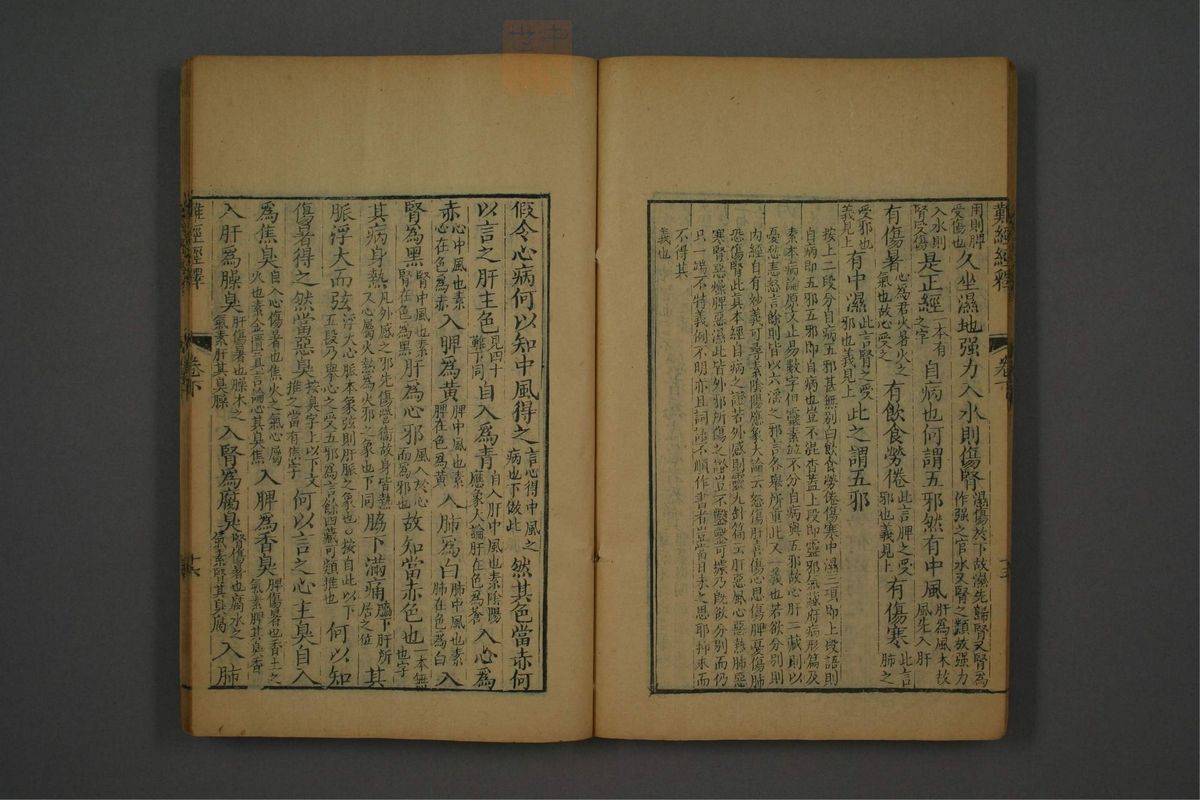 難經經釋 卷下 十五
用則脾受傷也久坐濕地强力入水則傷腎濕傷於下故濕先歸腎又腎為作强之官水又腎之類故强力
入水則腎受傷是正經一本有之字自病也何謂五邪然有中風肝為風木故風先入肝
有傷暑心為君火暑火之氣也故心受之有飲食勞倦此言脾之受邪也義見上有傷寒此言肺之
受邪也義見上有中濕此言腎之受邪也義見上此之謂五邪
按上二段分自病五邪甚無別白飲食勞倦傷寒中濕三項即上段語則
自病即五邪五邪即自病也豈不混杳蓋上段即靈邪氣藏府病形篇及
素本病論原文止易數字但靈素並不分自病與五邪故心肝二藏則以
憂愁恚怒言餘則皆以六淫之邪言各舉所重此又一義也若欲分別則
內經自有妙義可尋素陰陽應象大論云怒傷肝喜傷心思傷脾憂傷肺
恐傷腎此真本經自病之證若外感則靈九針篇云肝惡風心惡熱肺惡
寒腎惡燥脾惡濕此皆外邪所傷之證豈不鑿鑿可據乃既欲分別而仍
只一端不特義例不明亦且詞語不順作書者豈當日未之思耶抑求而
不得其
義也
假令心病何以知中風得之言心得中風之病也下倣此然其色當赤何
以言之肝主色見四十難下同自入為青自入肝中風也素陰陽應象大論肝在色為蒼入心為
赤心中風也素心在色為赤入脾為黃脾中風也素脾在色為黃入肺為白肺中風也素肺在色為白入
腎為黑腎中風也素腎在色為黑肝為心邪風入於心而為邪也故知當赤色也一本無也字
其病身熱凡外感之邪先傷營衞故身皆熱又心屬火熱為火邪之象也下同脇下滿痛脇下肝所居之位其
脈浮大而弦浮大心脈本象弦則肝脈之象也○按自此以下五段乃舉心之受五邪為言餘四藏可類推也何以知
傷暑得之然當惡臭按臭字上以下文推之當有焦字何以言之心主臭自入
為焦臭自入心傷暑也焦火之氣心屬火也素金匱真言論心其臭焦入脾為香臭脾傷暑也香土之氣素脾其臭香
入肝為臊臭肝傷暑也臊木之氣素肝其臭臊入腎為腐臭腎傷暑也腐水之氣素腎其臭腐入肺
難經經釋 卷下 十六